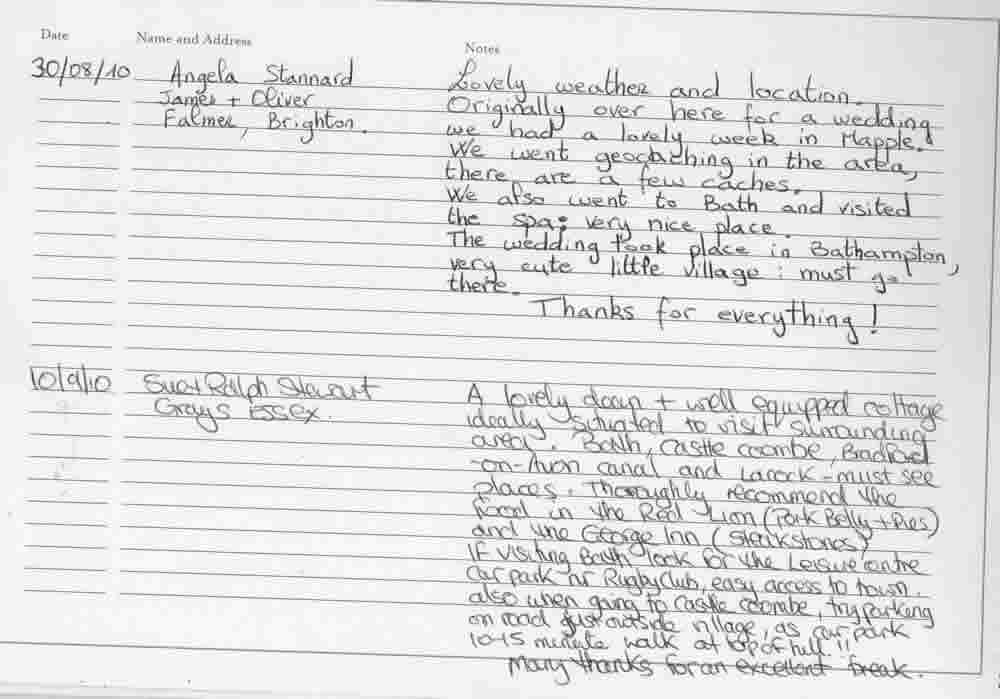 Date Name and Address Notes
30/08/10 Angela Stannard
James + Oliver
Falmer, Brighton.
Lovely weather and location.
Originally over here for a wedding
we had a lovely week in Mapple.
We went geocaching in the area,
there are a few caches.
We also went to Bath and visited
the spa: very nice place.
The wedding took place in Bathampton,
very cute little village : must go
there.
Thanks for everything!
10/9/10 Sue + Ralph Stewart
Grays Essex.
A lovely clean + well equipped cottage
ideally situated to visit surrounding
area. Bath, Castle coombe, Bradford
-on-Avon canal and Lacock - must see
places. Thoroughly recommend the
food in the Red Lion (Pork Belly + Pies)
and the George Inn (Steakstones)
If visiting Bath look for the Leisure centre
car park nr Rugby Club, easy access to town.
also when going to Castle coombe, try parking
on road just outside village, as car park
10-15 minute walk at top of hill!!
Many thanks for an excellent break.